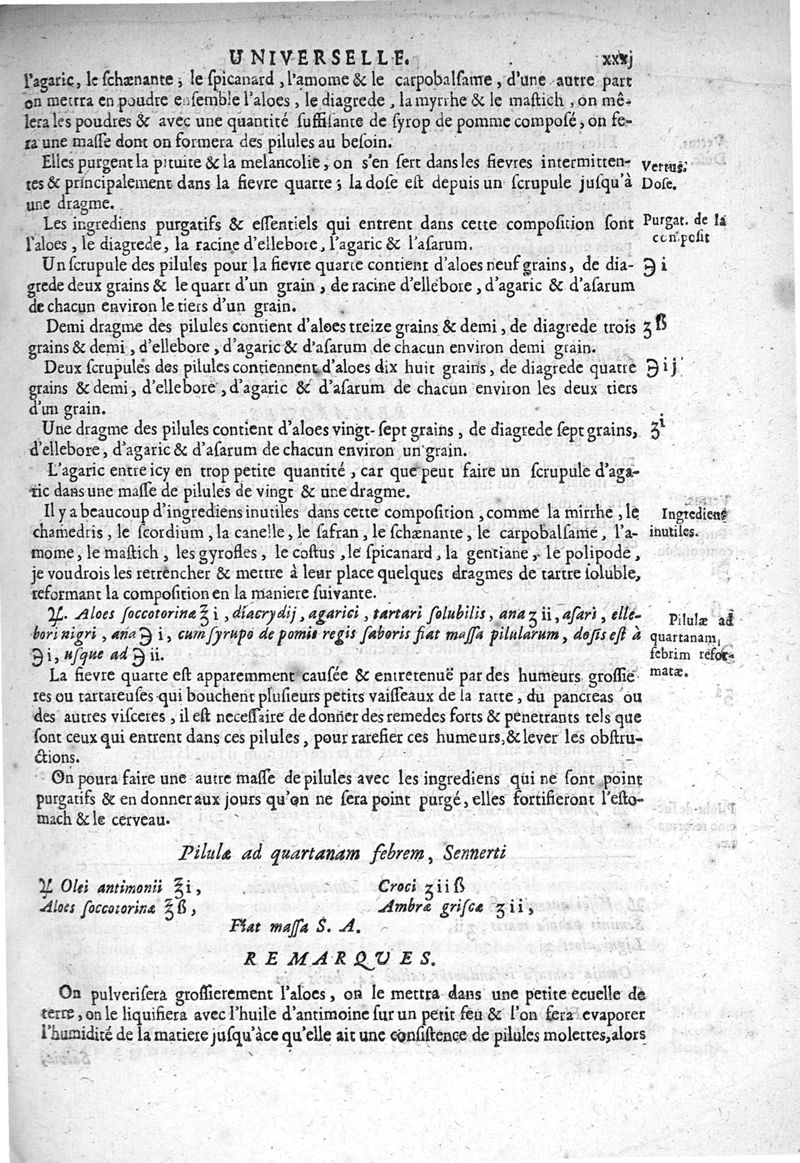 UNIVERSELLE. xxxj
l'agaric, le ſchænante, le ſpicanard, l'amome & le carpobalſame, d'une autre part
on mettra en poudre enſemble l'aloes, le diagrede, la myrrhe & le maſtich, on mê-
lera les poudres & avec une quantité ſuffiſante de ſyrop de pomme compoſé, on fe-
ra une maſſe dont on formera des pilules au beſoin.
Elles purgent la pituite & la melancolie, on s'en ſert dans les fievres intermitten-
Vertus.
tes & principalement dans la fievre quarte; la doſe eſt depuis un ſcrupule juſqu'à
Doſe.
une dragme.
Les ingrediens purgatifs & eſſentiels qui entrent dans cette compoſition ſont
Purgat. de la
l'aloes, le diagrede, la racine d'ellebore, l'agaric & l'aſarum.
compoſit
Un ſcrupule des pilules pour la fievre quarte contient d'aloes neuf grains, de dia-
℈ i
grede deux grains & le quart d'un grain, de racine d'ellebore, d'agaric & d'aſarum
de chacun environ le tiers d'un grain.
Demi dragme des pilules contient d'aloes treize grains & demi, de diagrede trois
ʒ ß
grains & demi, d'ellebore, d'agaric & d'aſarum de chacun environ demi grain.
Deux ſcrupules des pilules contiennent d'aloes dix huit grains, de diagrede quatre
℈ ij
grains & demi, d'ellebore, d'agaric & d'aſarum de chacun environ les deux tiers
d'un grain.
Une dragme des pilules contient d'aloes vingt-ſept grains, de diagrede ſept grains,
ʒ i
d'ellebore, d'agaric & d'aſarum de chacun environ un grain.
L'agaric entre icy en trop petite quantité, car que peut faire un ſcrupule d'aga-
ric dans une maſſe de pilules de vingt & une dragme.
Il y a beaucoup d'ingrediens inutiles dans cette compoſition, comme la mirrhe, le
Ingrediens
chamedris, le ſcordium, la canelle, le ſafran, le ſchænante, le carpobalſame, l'a-
inutiles.
mome, le maſtich, les gyrofles, le coſtus, le ſpicanard, la gentiane, le polipode,
je voudrois les retrencher & mettre à leur place quelques dragmes de tartre ſoluble,
reformant la compoſition en la maniere ſuivante.
℞. Aloes ſoccotorinæ ℥ i, diacrydij, agarici, tartari ſolubilis, ana ʒ ii, aſari, elle-
Pilulæ ad
bori nigri, ana ℈ i, cum ſyrupo de pomis regis ſaboris fiat maſſa pilularum, doſis eſt à
quartanam
℈ i, uſque ad ℈ ii.
febrim refor-
La fievre quarte eſt apparemment cauſée & entretenuë par des humeurs groſſie
matæ.
res ou tartareuſes qui bouchent pluſieurs petits vaiſſeaux de la ratte, du pancreas ou
des autres viſceres, il eſt neceſſaire de donner des remedes forts & penetrants tels que
ſont ceux qui entrent dans ces pilules, pour rarefier ces humeurs, & lever les obſtru-
ctions.
On poura faire une autre maſſe de pilules avec les ingrediens qui ne ſont point
purgatifs & en donner aux jours qu'on ne ſera point purgé, elles fortifieront l'eſto-
mach & le cerveau.
Pilulæ ad quartanam febrem, Sennerti
℞ Olei antimonii ℥ i, Croci ʒ ii ß
Aloes ſoccotorinæ ℥ ß, Ambræ griſeæ ʒ ii,
Fiat maſſa S. A.
REMARQUES.
On pulveriſera groſſierement l'aloes, on le mettra dans une petite ecuelle de
terre, on le liquifiera avec l'huile d'antimoine ſur un petit feu & l'on fera evaporer
l'humidité de la matiere juſqu'àce qu'elle ait une conſiſtence de pilules molettes, alors